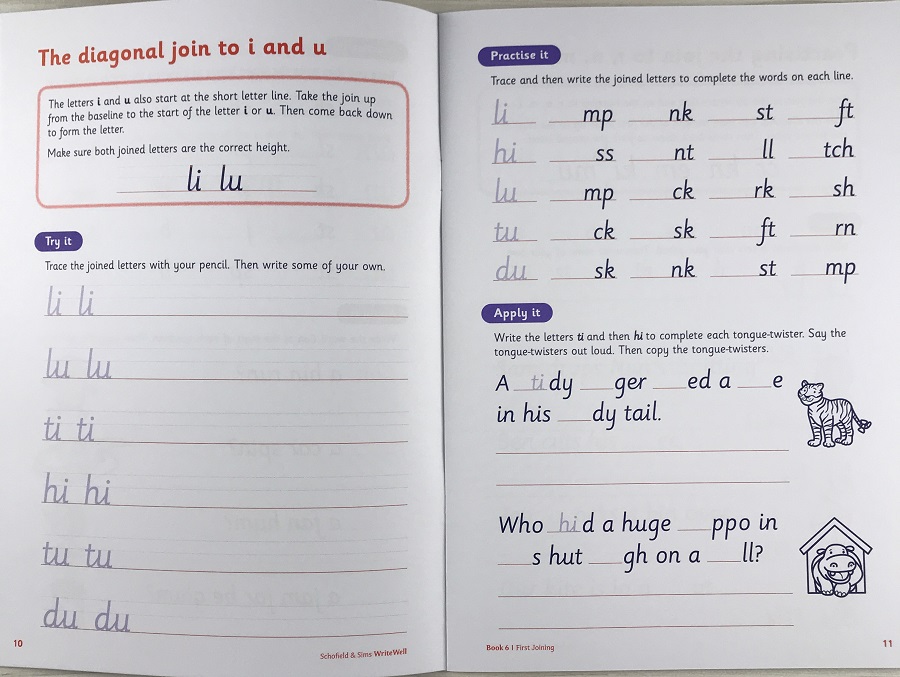 The diagonal join to i and u
The letters i and u also start at the short letter line. Take the join up
from the baseline to the start of the letter i or u. Then come back down
to form the letter.
Make sure both joined letters are the correct height.
li lu
Try it
Trace the joined letters with your pencil. Then write some of your own.
li li
lu lu
ti ti
hi hi
tu tu
du du
10
Schofield & Sims WriteWell
Practise it
Trace and then write the joined letters to complete the words on each line.
li ___ mp ___ nk ___ st ___ ft
hi ___ ss ___ nt ___ ll ___ tch
lu ___ mp ___ ck ___ rk ___ sh
tu ___ ck ___ sk ___ ft ___ rn
du ___ sk ___ nk ___ st ___ mp
Apply it
Write the letters ti and then hi to complete each tongue-twister. Say the
tongue-twisters out loud. Then copy the tongue-twisters.
A tidy ___ger ___ed a ___e
in his ___dy tail.
Who hid a huge ___ppo in
___s hut ___gh on a ___ll?
Book 6 | First Joining
11